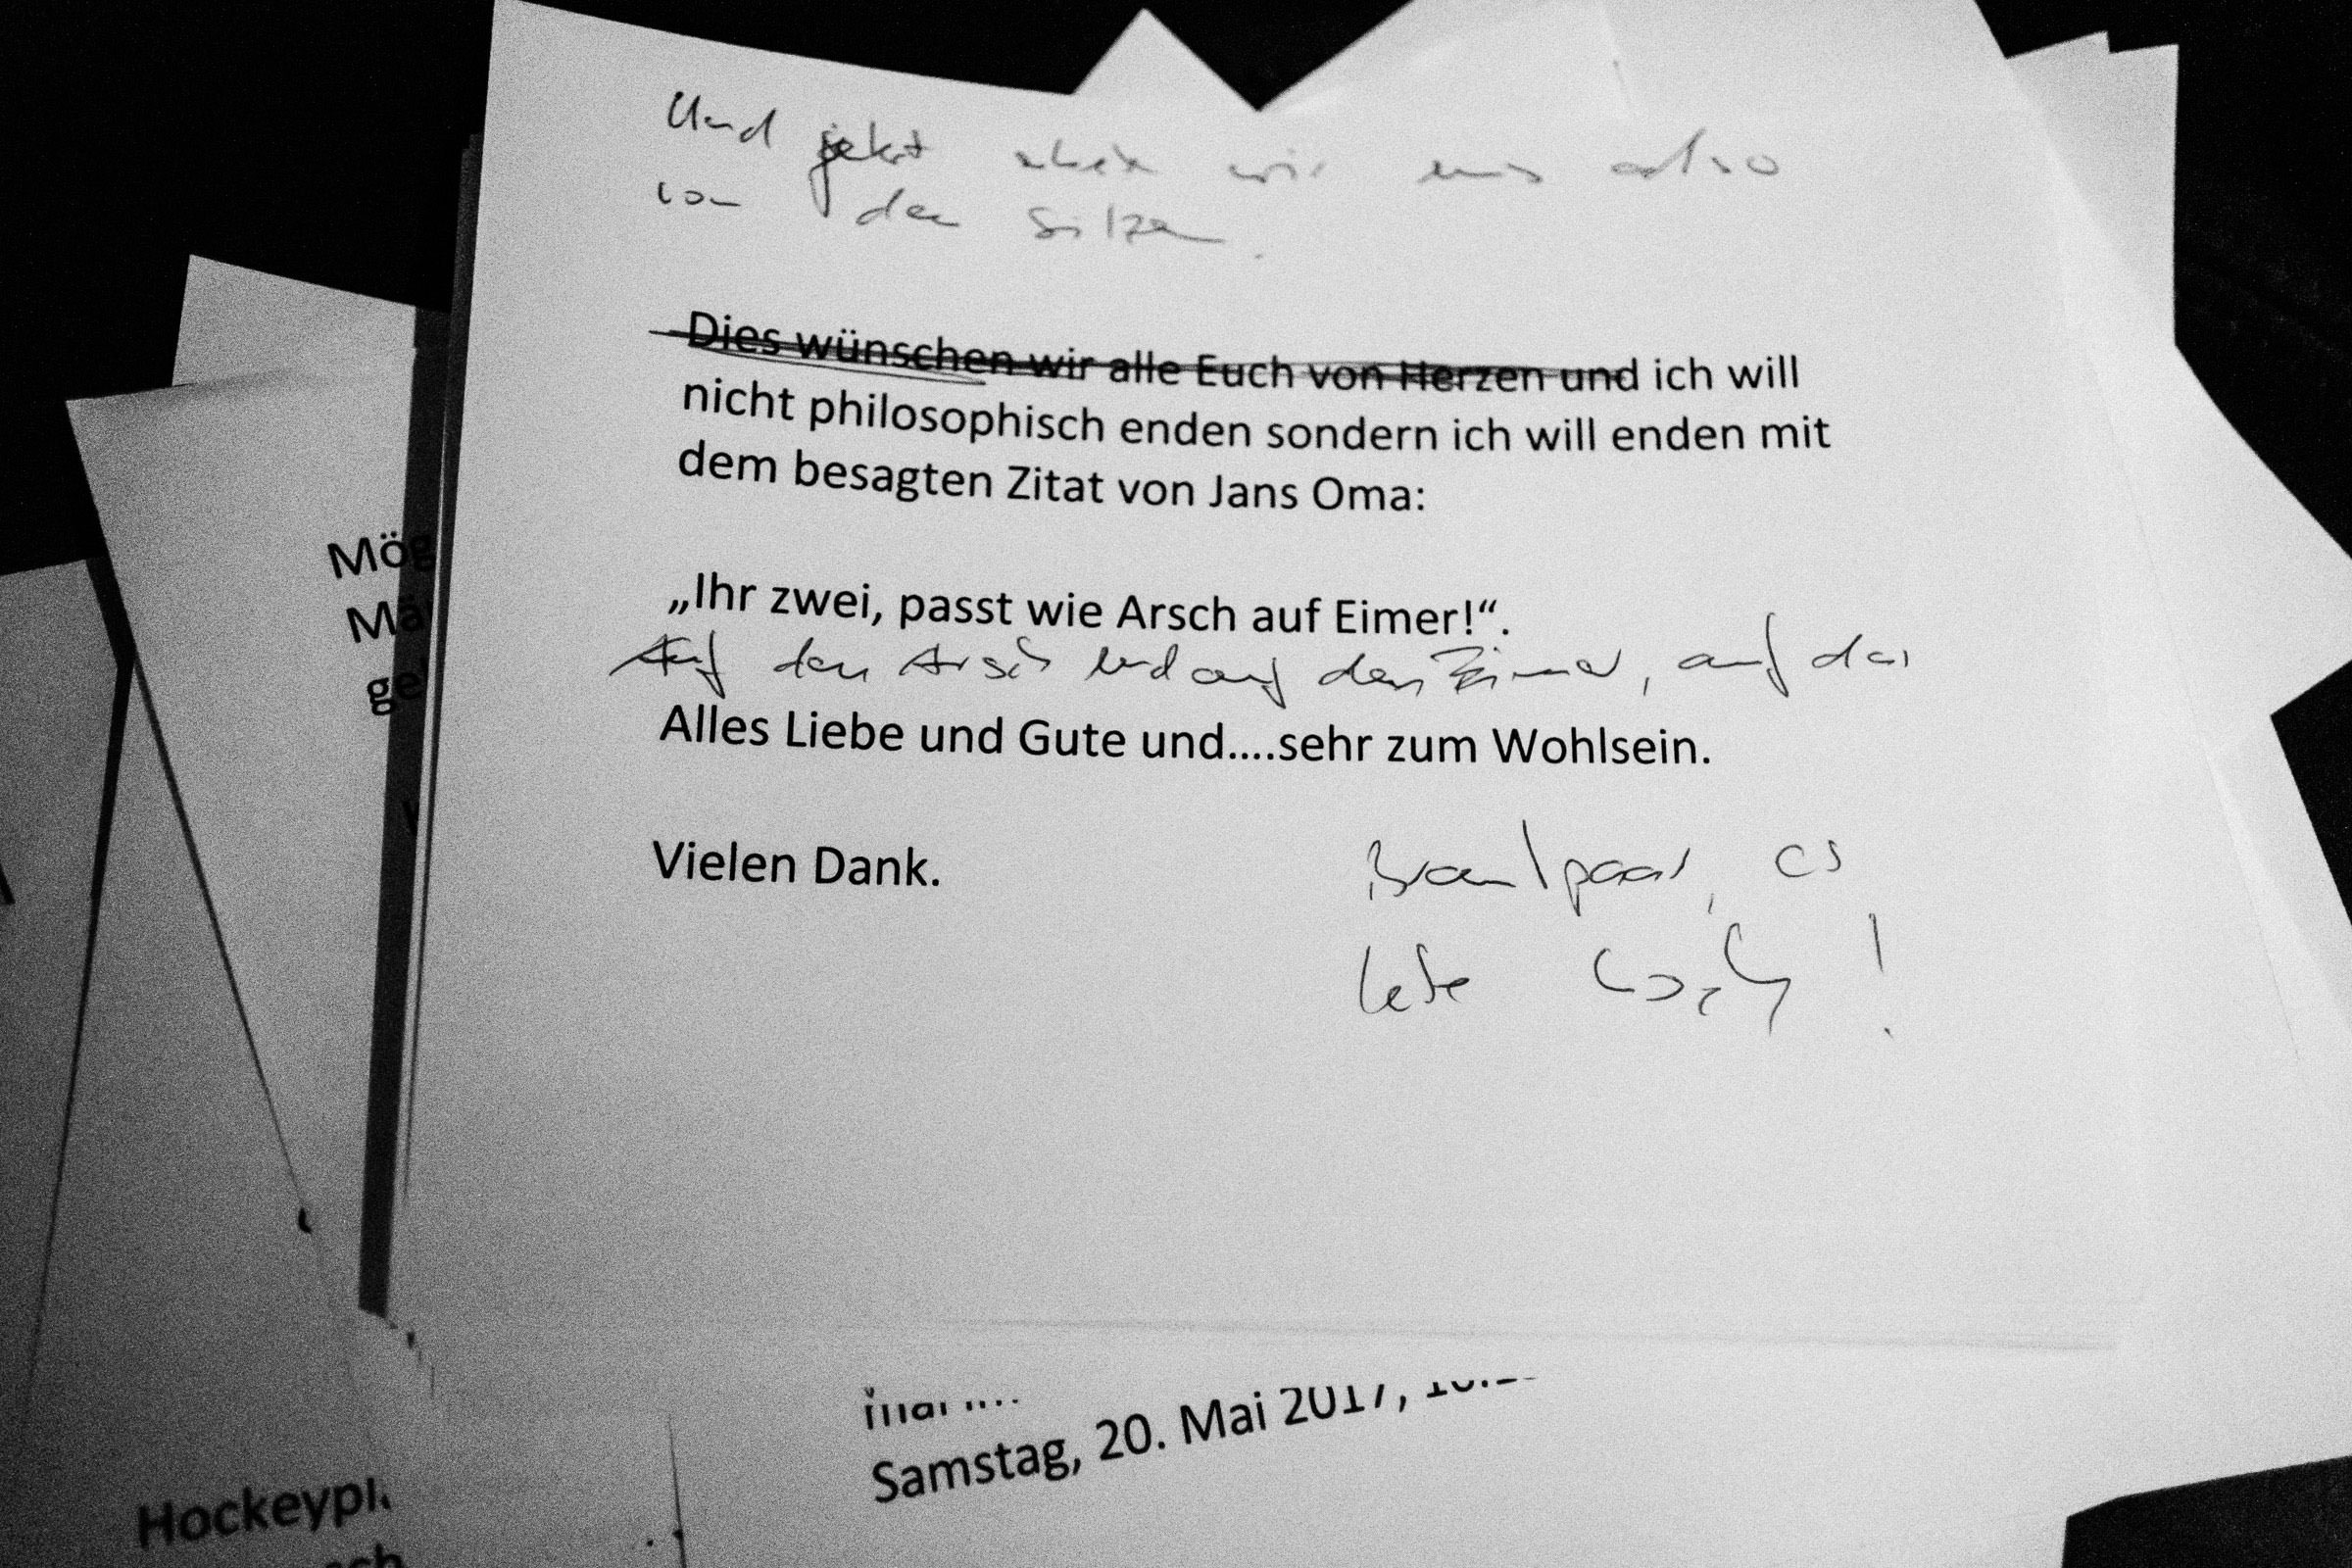 Und jetzt wir uns also
von den Sitzen.
Dies wünschen wir alle Euch von Herzen und ich will
nicht philosophisch enden sondern ich will enden mit
dem besagten Zitat von Jans Oma:
„Ihr zwei, passt wie Arsch auf Eimer!“.
Auf den Arsch und auf den Eimer, auf das
Alles Liebe und Gute und....sehr zum Wohlsein.
Vielen Dank.
Brautpaar, es
lebe hoch!
Mög
Mä
ge
Samstag, 20. Mai 2017,
Hockeypl